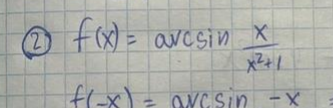 ② f(x) = arcsin x/(x²+1)
f(-x) = arcsin -x